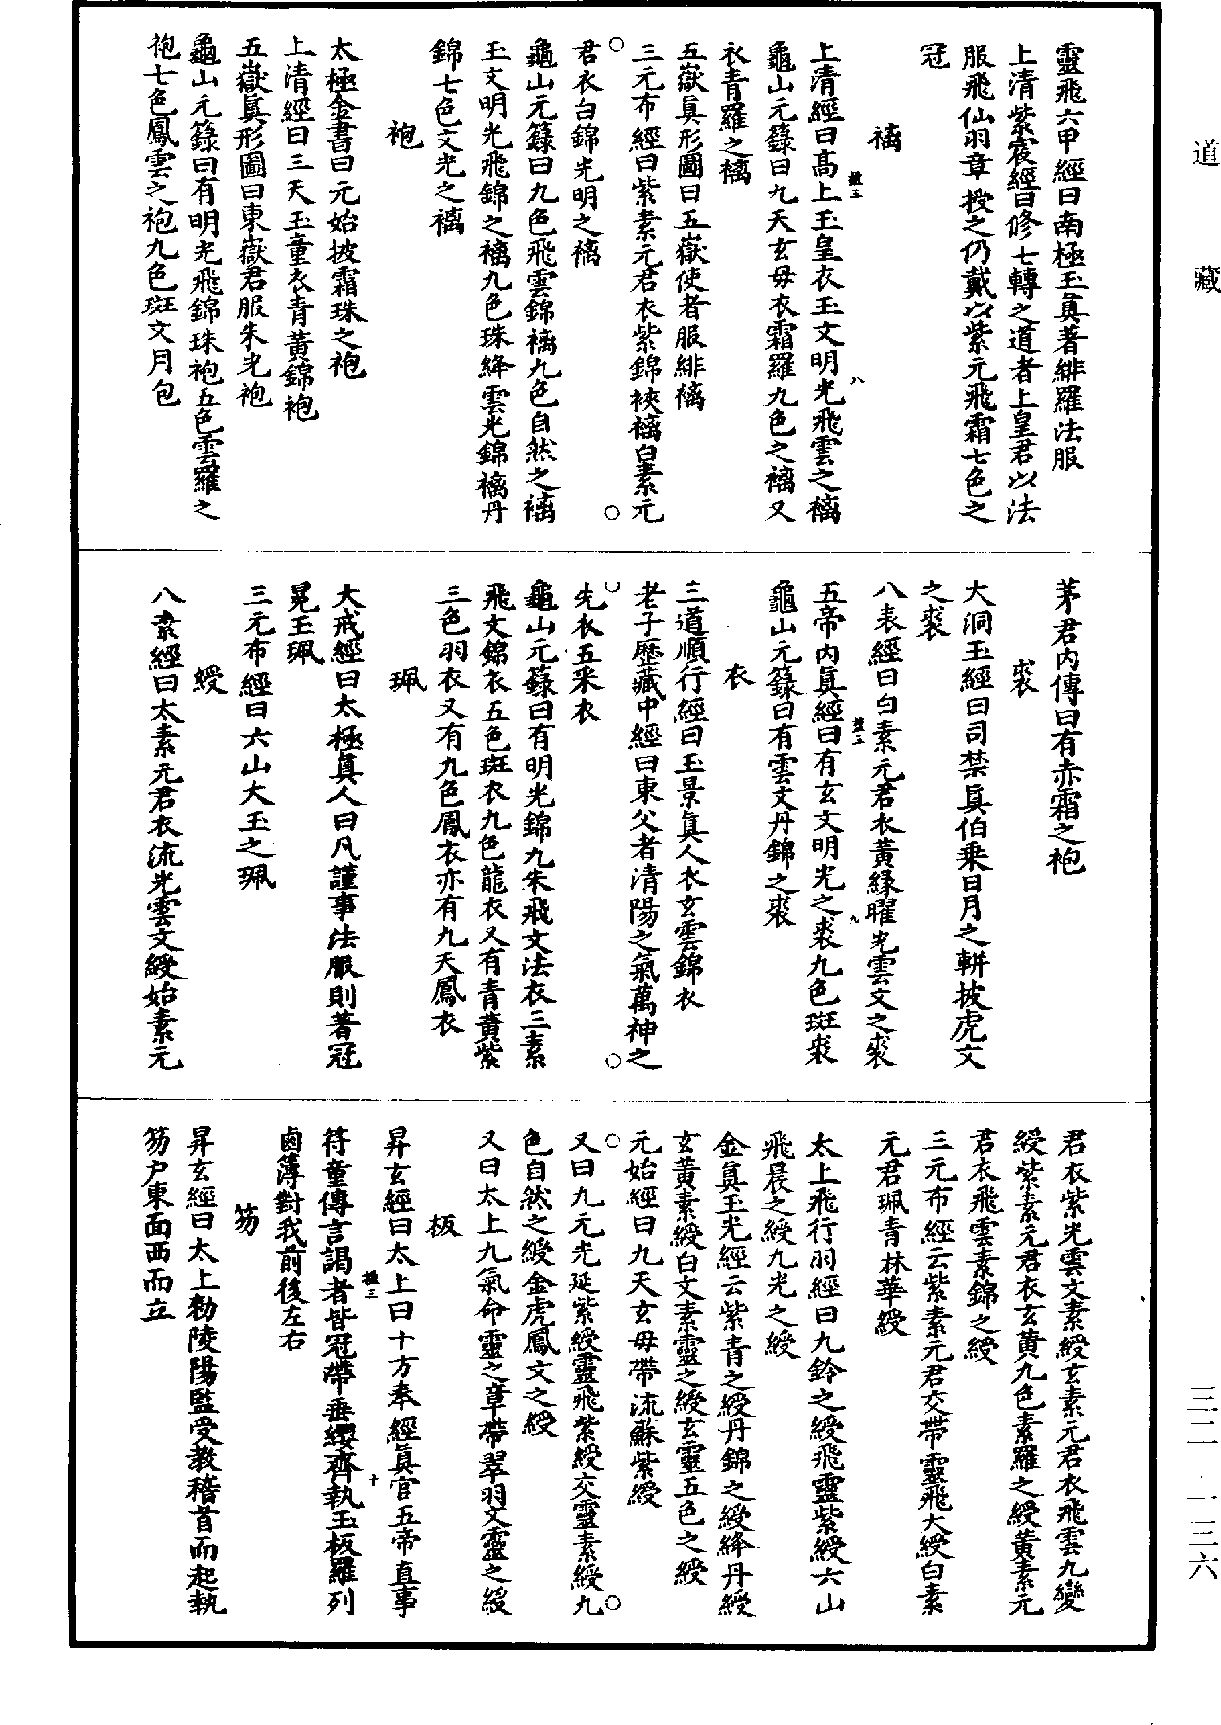 道藏
靈飛六甲經曰南極玉真著緋羅法服
上清紫宸經曰修七轉之道者上皇君以法
服飛仙羽章授之仍戴以紫元飛霜七色之
冠
褵
上清經曰高上玉皇衣玉文明光飛雲之褵
龜山元籙曰九天玄母衣霜羅九色之褵又
衣青羅之褵
五嶽真形圖曰五嶽使者服緋褵
三元布經曰紫素元君衣紫錦裌褵白素元
君衣白錦光明之褵
龜山元籙曰九色飛雲錦褵九色自然之褵
玉文明光飛錦之褵九色珠絳雲光錦褵丹
錦七色文光之褵
袍
太極金書曰元始披霜珠之袍
上清經曰三天玉童衣青黃錦袍
五嶽真形圖曰東嶽君服朱光袍
龜山元籙曰有明光飛錦珠袍五色雲羅之
袍七色鳳雲之袍九色斑文月包
茅君內傳曰有赤霜之袍
裘
大洞玉經曰司禁真伯乘日月之輧披虎文
之裘
八表經曰白素元君衣黃綠曜光雲文之裘
五帝內真經曰有玄文明光之裘九色斑裘
龜山元籙曰有雲文丹錦之裘
衣
三道順行經曰玉景真人衣玄雲錦衣
老子歷藏中經曰東父者清陽之氣萬神之
先衣五采衣
龜山元籙曰有明光錦九朱飛文法衣三素
飛文錦衣五色斑衣九色龍衣又有青黃紫
三色羽衣又有九色鳳衣亦有九天鳳衣
珮
大戒經曰太極真人曰凡謹事法服則著冠
冕玉珮
三元布經曰六山大玉之珮
綬
八素經曰太素元君衣流光雲文綬始素元
君衣紫光雲文素綬玄素元君衣飛雲九變
綬紫素元君衣玄黃九色素羅之綬黃素元
君衣飛雲素錦之綬
三元布經云紫素元君交帶靈飛大綬白素
元君珮青林華綬
太上飛行羽經曰九鈴之綬飛靈紫綬六山
飛晨之綬九光之綬
金真玉光經云紫青之綬丹錦之綬絳丹綬
玄黃素綬白文素靈之綬玄靈五色之綬
元始經曰九天玄母帶流蘇紫綬
又曰九元光延紫綬靈飛紫綬交靈素綬九
色自然之綬金虎鳳文之綬
又曰太上九氣命靈之章帶翠羽文靈之綬
板
昇玄經曰太上曰十方奉經真官五帝直事
符童傳言謁者皆冠帶垂纓齊執玉板羅列
鹵簿對我前後左右
笏
昇玄經曰太上勑陵陽監受教稽首而起執
笏戶東面西而立
三二—一三六